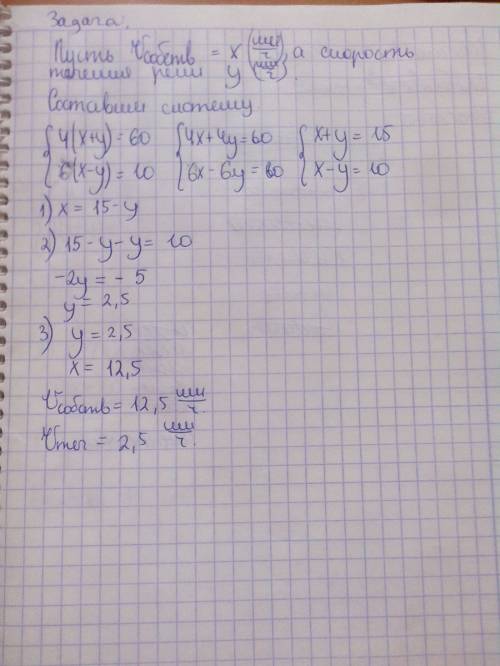 Задача.
Пусть Vсобств = x (км/ч), а скорость
течения реки y (км/ч).
Составим систему
{ 4(x+y)=60 { 4x+4y=60 { x+y=15
{ 6(x-y)=10 { 6x-6y=60 { x-y=10
1) x = 15-y
2) 15-y-y= 10
-2y = -5
y = 2,5
3) y = 2,5
x = 12,5
Vсобств = 12,5 км/ч.
Vтеч = 2,5 км/ч.